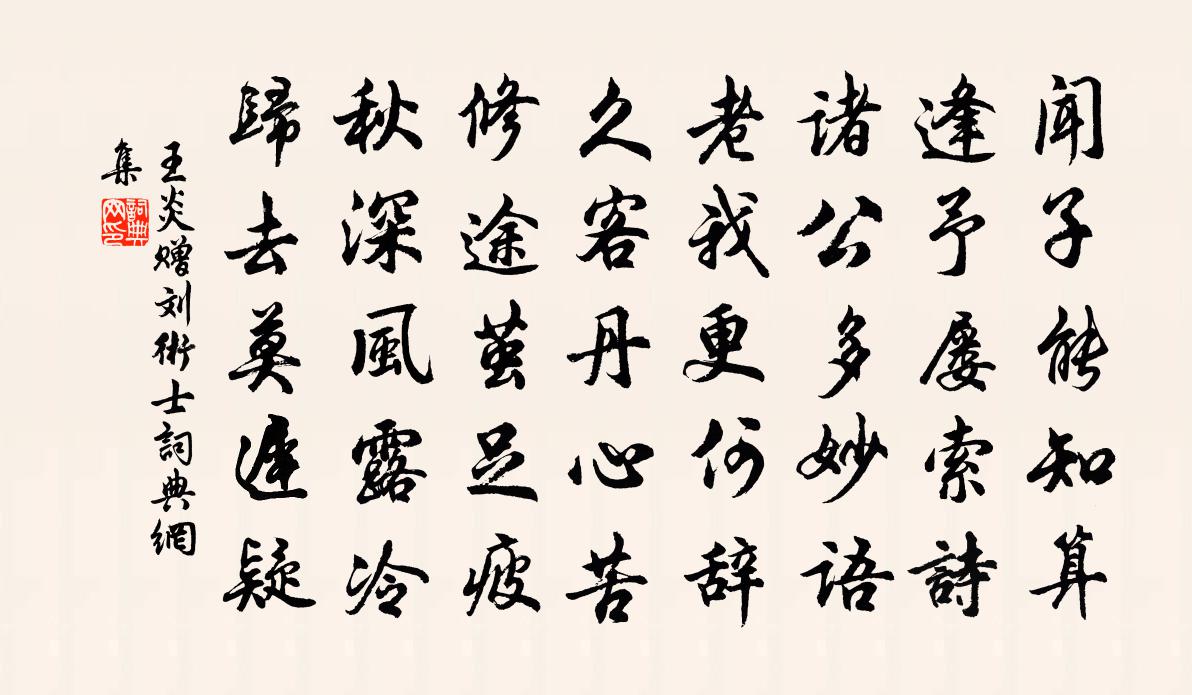 闻子能知算
逢予屡索詩
诸公多妙语
老我更何辞
久客丹心苦
修途茧足疲
秋深風露冷
歸去莫遲疑
王炎赠刘術士詞典網
集
詞典网印